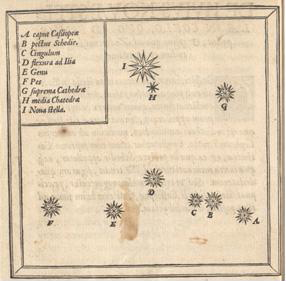 A caput Cassiopeæ
B pectus Schedir.
C Cingulum
D flexura ad Ilia
E Genu
F Pes
G suprema Cathedræ
H media Chatedræ
I Noua stella.
I
H
G
D
C
E
A
E
F